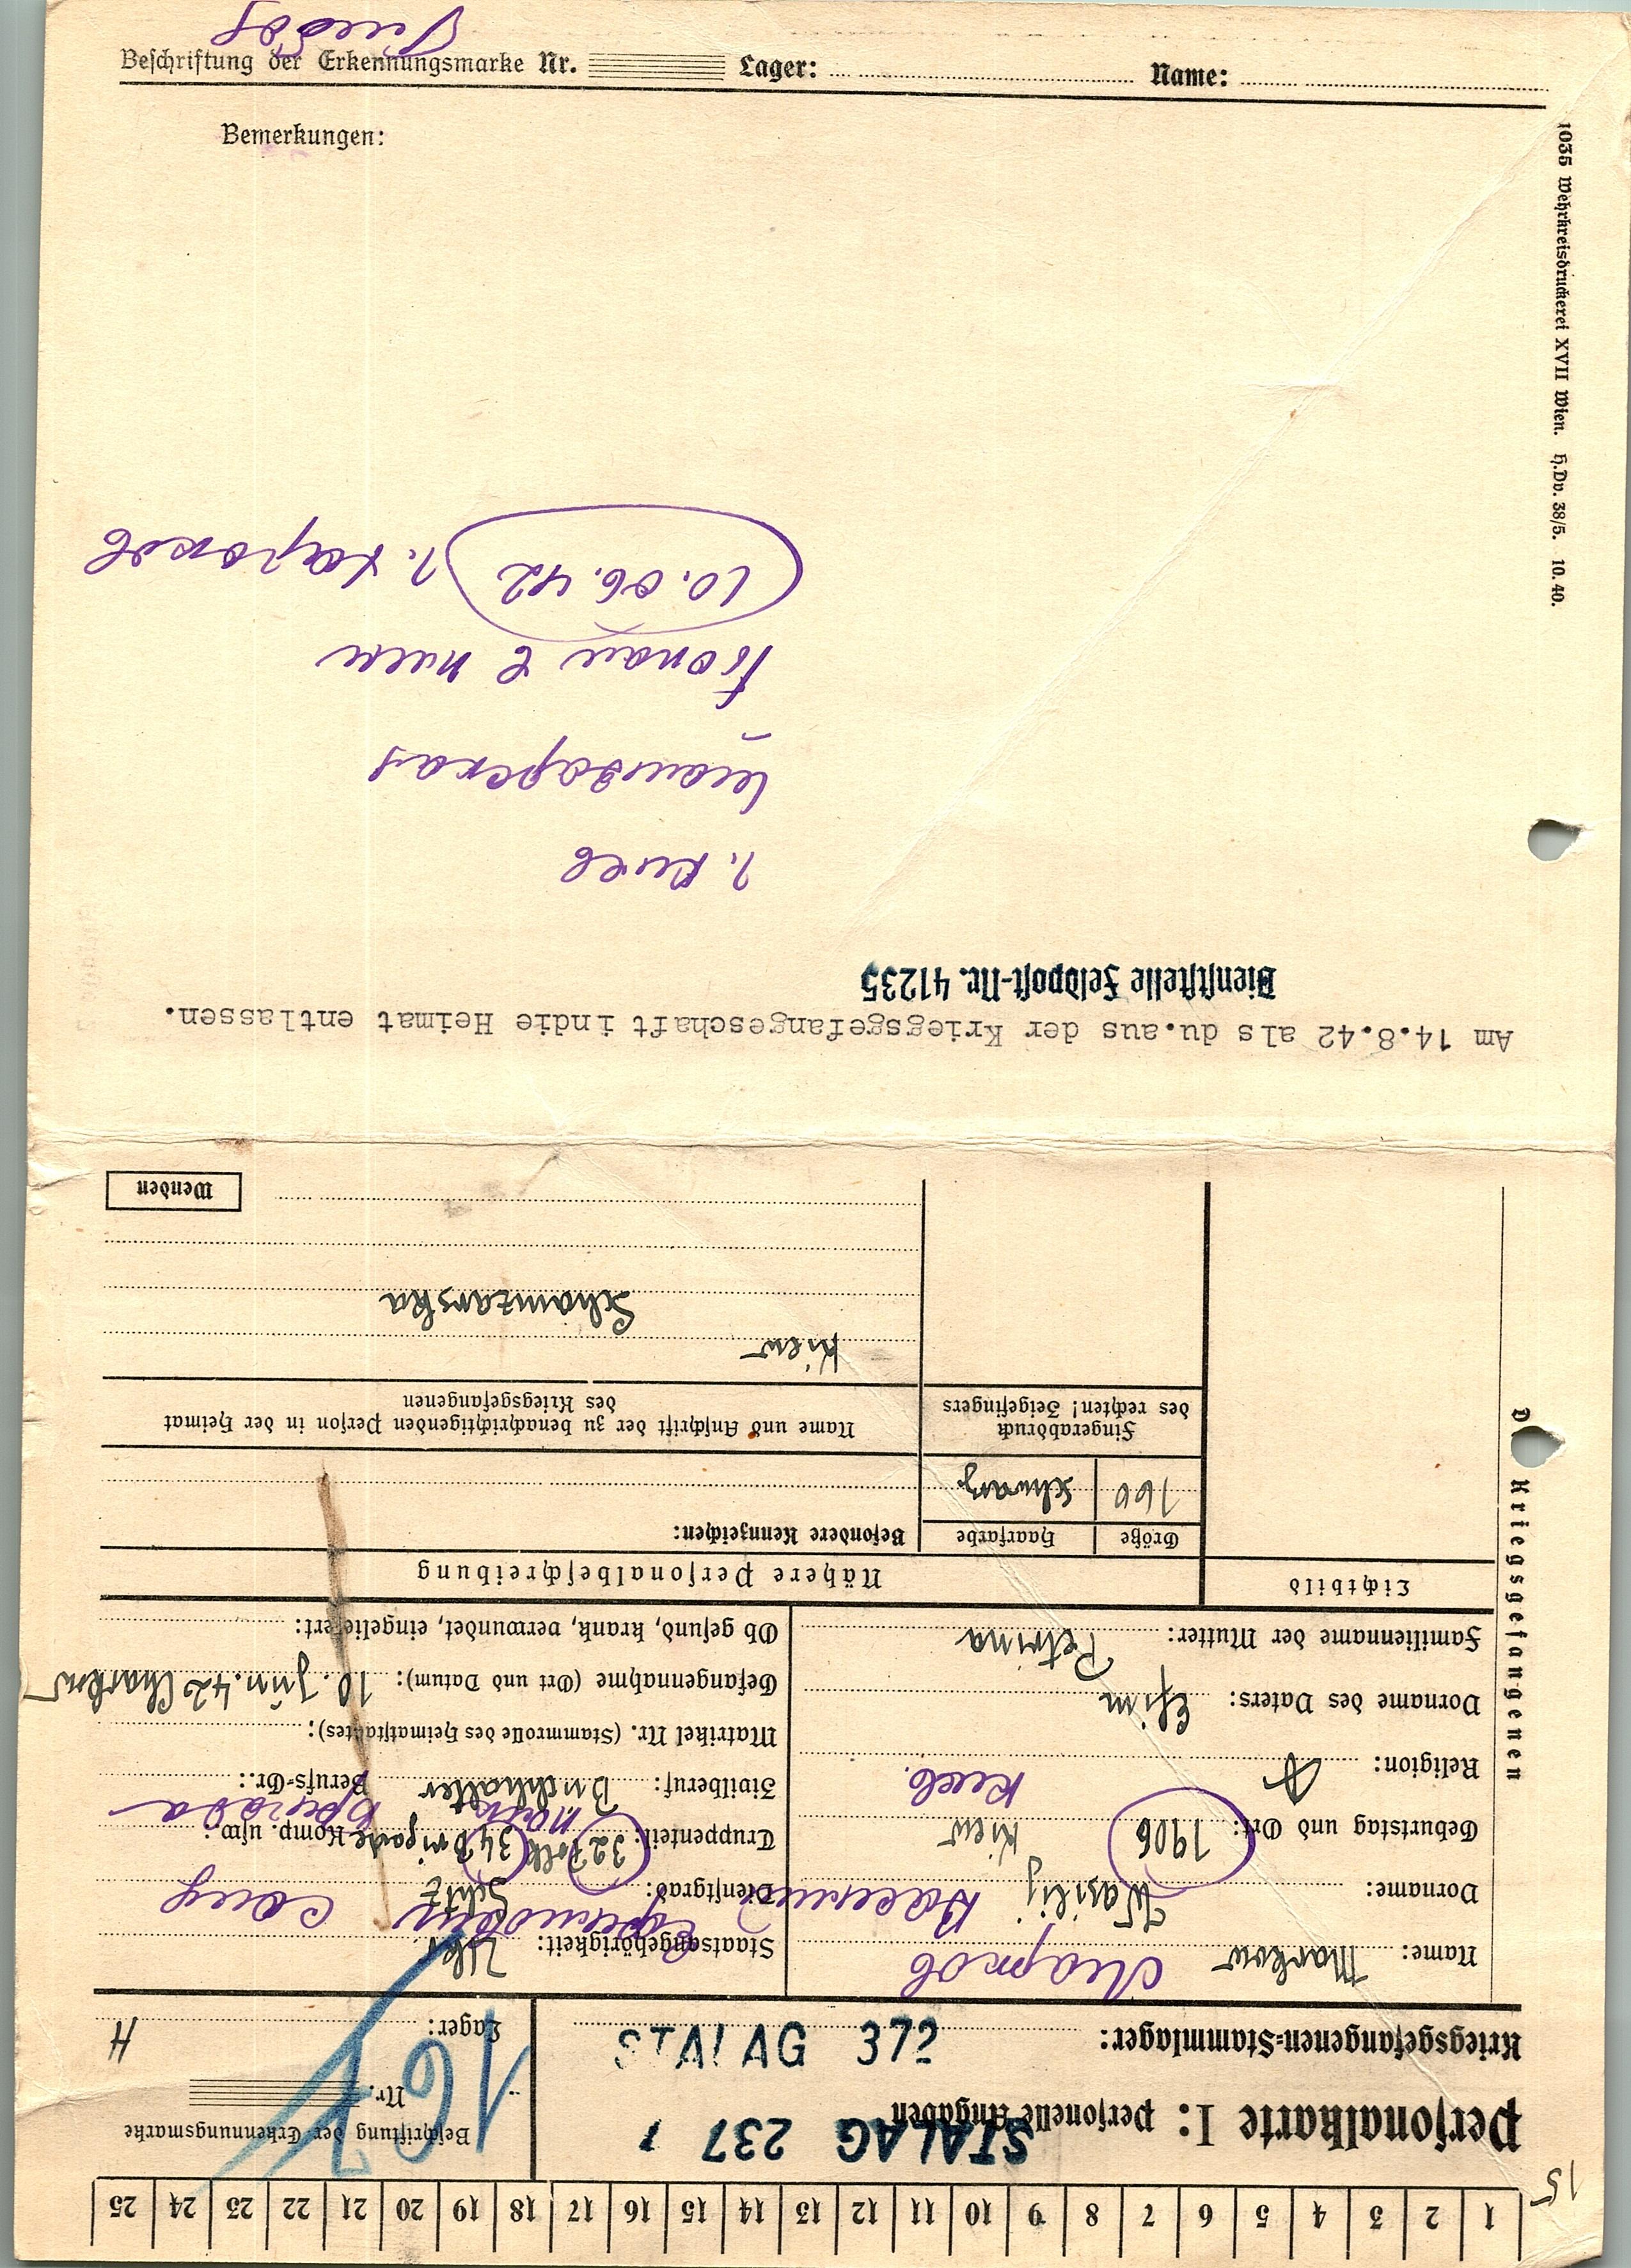 1 2 3 4 5 6 7 8 9 10 11 12 13 14 15 16 17 18 19 20 21 22 23 24 25
15
Personalkarte I: Personelle Angaben
STALAG 237
Kriegsgefangenen-Stammlager: STALAG 372
Beschriftung der Erkennungsmarke
Nr. 161
Lager: H
Des Kriegsgefangenen
Name: Markow Марков
Vorname: Wasilij Василий
Geburtstag und Ort: 1906 Kiew
Киев.
Religion:
Vorname des Vaters: Efim
Familienname der Mutter: Petrina
Staatsangehörigkeit: Ukr.
Ефимович
Dienstgrad: Schtz
Truppenteil: 32 Polk 34 Brigade Komp. usw.:
полк бригада
Zivilberuf: Buchhalter Berufs-Gr.:
Matrikel Nr. (Stammrolle des Heimatstaates):
Gefangennahme (Ort und Datum): 10. Jun. 42 Charkow
Ob gesund, krank, verwundet, eingeliefert:
Lichtbild
Nähere Personalbeschreibung
Größe Haarfarbe Besondere Kennzeichen:
160 schwarz
Fingerabdruck
des rechten! Zeigefingers
Name und Anschrift der zu benachrichtigenden Person in der Heimat
des Kriegsgefangenen
Kiew
Schamzarska
Wenden
Am 14.8.42 als du.aus der Kriegsgefangeschaft indie Heimat entlassen.
Dienststelle Feldpost-Nr. 41235
г. Киев
Попал в плен
10.06.42 г. Харьков
Bemerkungen:
Beschriftung der Erkennungsmarke Nr. Lager: Name:
1035 Wehrkreisdruckerei XVII Wien. H.Dv. 38/5. 10.40.